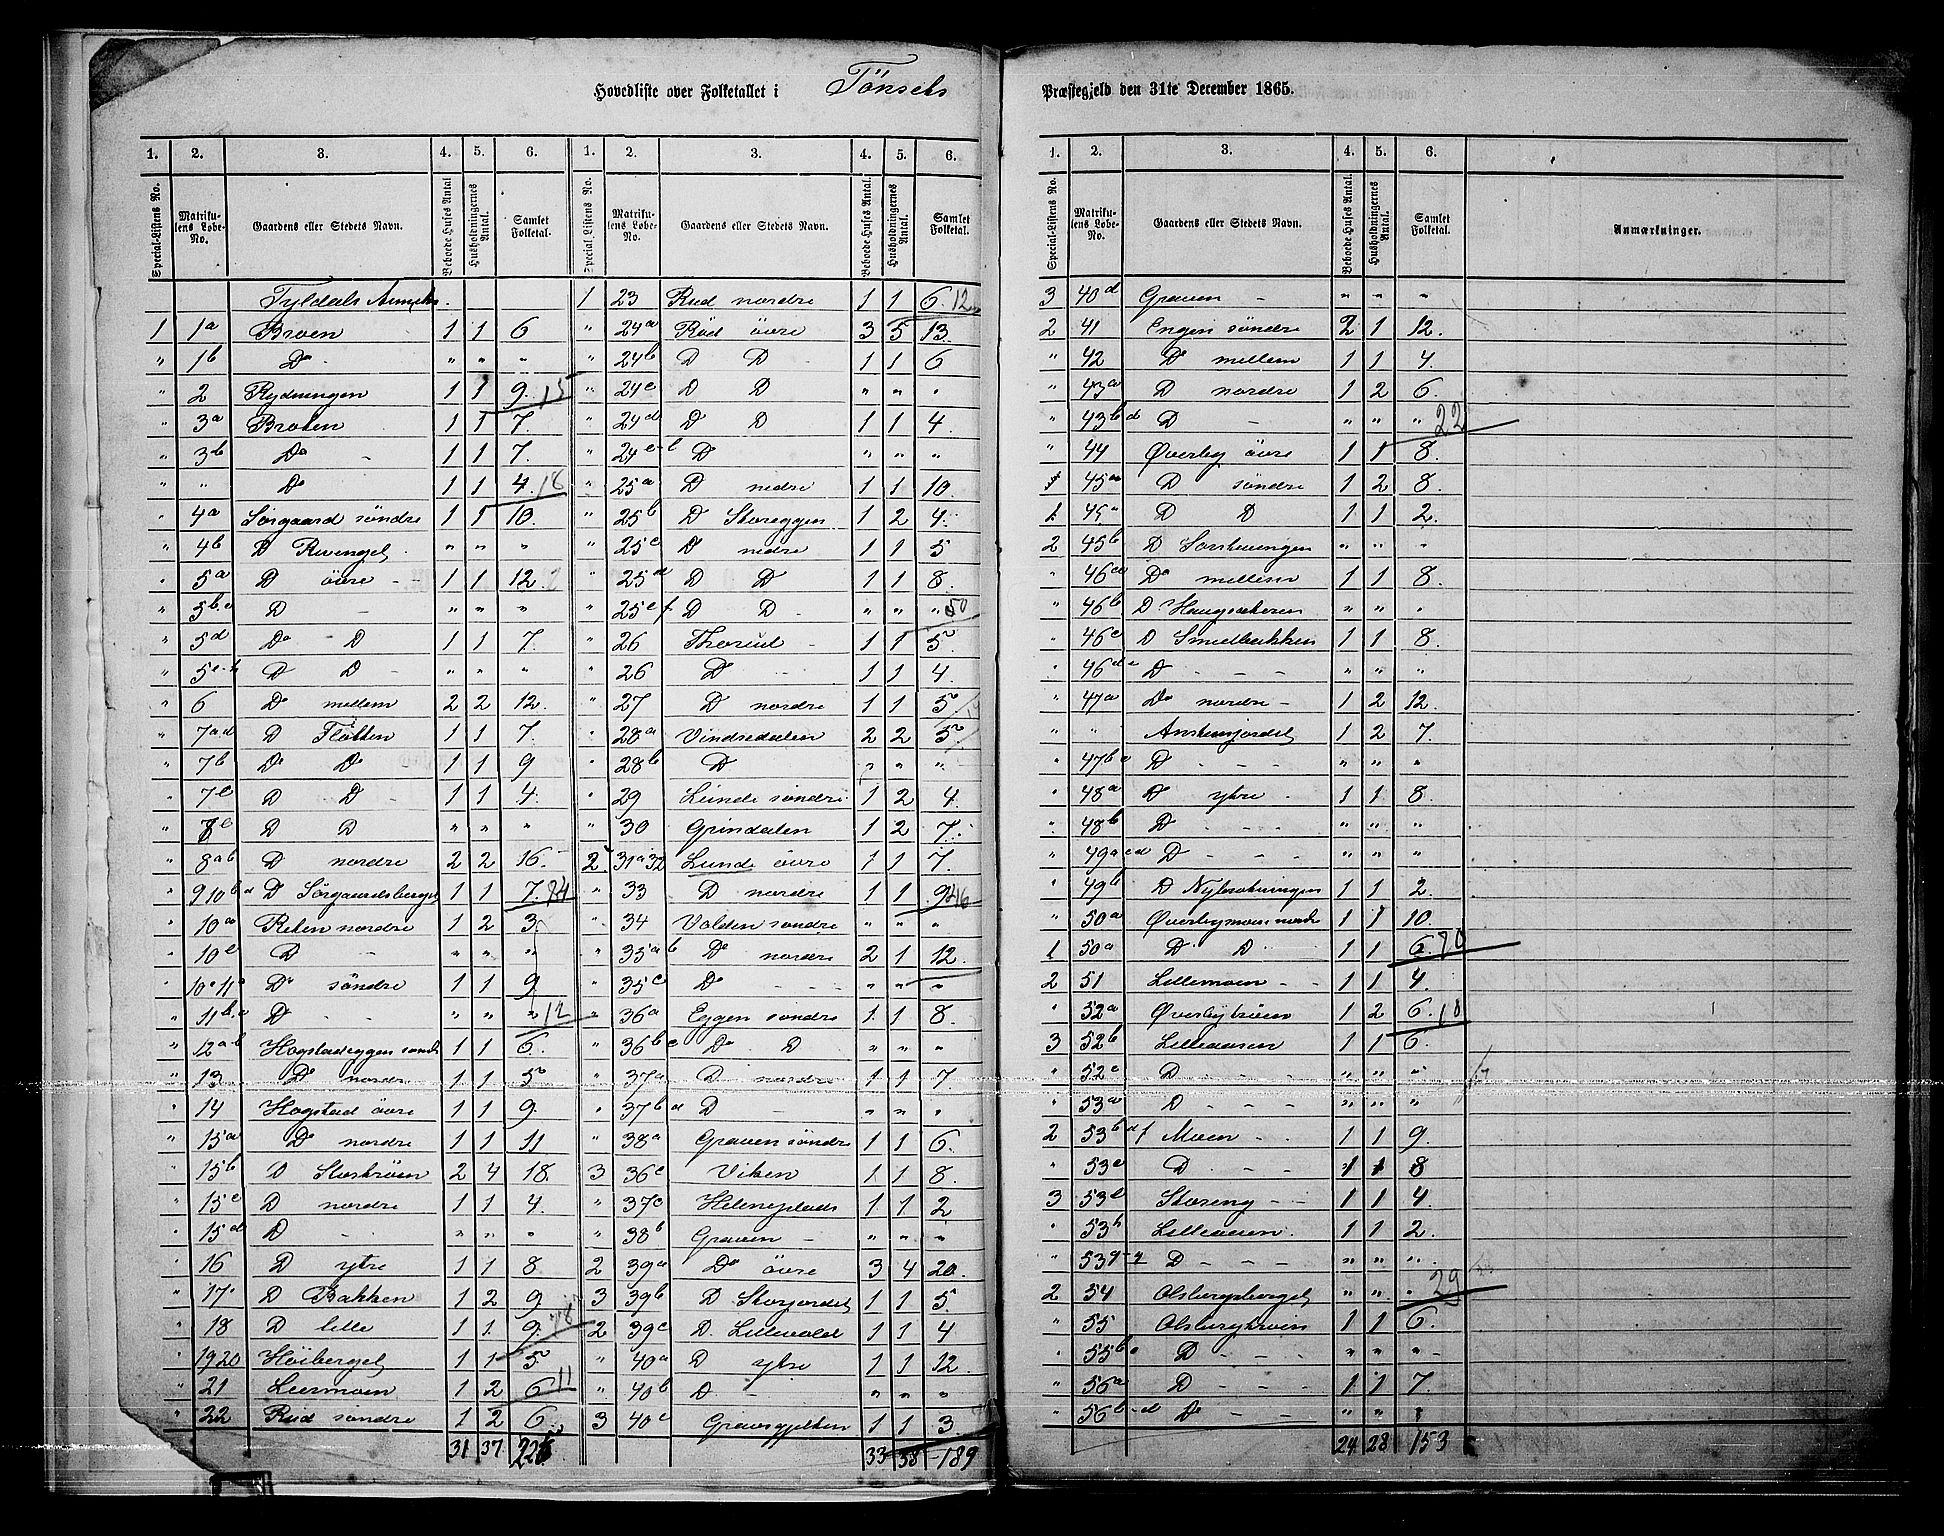 Hovedliste over Folketallet i Tönsets Præstegjeld den 31te December 1865.
1. 2. 3. 4. 5. 6. 1. 2. 3. 4. 5. 6.
Special-Listens No. Matrikulens Løbe-No. Gaardens eller Stedets Navn. Beboede Huses Antal Husholdningernes Antal. Samlet Folketal. Special-Listens No. Matrikulens Løbe-No. Gaardens eller Stedets Navn. Beboede Huses Antal. Husholdningernes Antal. Samlet Folketal.
Tyldals
1 1a Broen 1 1 6
" 1b Do " " "
" 2 Rydningen 1 1 9. 15
" 3a Broten 1 1 7.
" 3b Do - 1 1 7.
" " Do 1 1 4. 18
" 4a Sørgaard söndre 1 1 10.
" 4b D " " "
" 5a D övre - 1 1 12.
" 5b.c D - " " "
" 5d Do D 1 1 7.
" D D - " " "
" 6 Do mellem 2 2 12.
" 7ad D Flötten 1 1 7.
" 7b Do Do 1 1 9
" 7c D D - 1 1 4.
" 8c D D " " "
" 8ab D nordre 2 2 16.
" 9 10b D Sørgaardsberget 1 1 7. 84
" 10a Reten nordre 1 2 3.
" 10c D - " " "
" Do söndre 1 1 9
" 11b Do - - " " " 12
" 12ab Hogstadeggen 1 1 6.
" 13 Do nordre 1 1 5
" 14 Hogstad övre 1 1 9.
" 15a Do nordre 1 1 11
" 15b D 2 4 18.
" 15c D nordre 1 1 4.
" 15d D - " " "
" 16 D ytre 1 1 8.
" 17 D Bakken 1 2 9
" 18 D lille 1 1 9. 78
" 19 20 Höiberget 1 1 5
" 21 Leermoen 1 2 6 11
" 22 Rud söndre 1 2 6.
31 37 225
1 23 Rud nordre 1 1 6. 12
" 24a Röd övre 3 5 13.
" 24b D D - 1 1 6
" 24c D D " " "
" 24d D D 1 1 4.
" D " " "
" 25a D nedre 1 1 10.
" 25b D Storeggen 1 2 4.
" 25c D nedre 1 1 5
" 25d D D 1 1 8.
" 25e f D D - " " " 50
" 26 Thorud - 1 1 5.
" 26 D - 1 1 4.
" 27 D nordre 1 1 5
" 28a Vindsedalen 2 2 5
" 28b D " " "
" 29 Lunde söndre 1 2 4.
" 30 Grindalen 1 2 7.
2 31a 32 Lunde övre 1 1 7.
" 33 D nordre 1 1 9 46
" 34 Volden söndre " " "
" 35a b Do nordre 2 1 12.
" 35c Do - - - " " "
" 36a Eggen söndre 1 1 8.
" 36b c Do D " " "
" 37a D nordre 1 1 7
" 37b d D - " " "
" 38a Graven söndre 1 1 6.
3 36c Viken 1 1 8.
" 37c Heleneplads 1 1 2
" 38b Graven - " " "
2 39a Do övre 3 4 20.
3 39b D Storjordet 1 1 5.
2 39c D. Lillevold 1 1 4
" 40a D ytre 1 1 12.
" 40b D - " " "
3 40c Gravsgjelten 1 1 3.
33 38 189
1. 2. 3. 4. 5. 6.
Special-Listens No. Matrikulens Løbe-No. Gaardens eller Stedets Navn. Beboede Huses Antal. Husholdningernes Antal. Samlet Folketal. Anmærkninger.
3 40d Graven - " " "
2 41 Engen söndre 2 1 12.
" 42 Do mellem 1 1 4.
" 43a D nordre 1 2 6.
" 43b d D - " " " 22
" 44 Øverby övre 1 1 8.
" 45a D söndre 1 2 8.
1 45" D D 1 1 2.
2 45b D " " "
" 46a Do mellem 1 1 8.
" 46b D " " "
" 46c D Smedbakken 1 1 8.
" 46d D - - - " " "
" 47a Do nordre - 1 2 12.
" " 1 2 7.
" 47b c D - - - " " "
" 48a D ytre - 1 1 8.
" 48b D - - - " " "
" 49a cd D - - - " " "
" 49b D 1 1 2.
" 50a Øverbymoen 1 1 10.
1 50a D D 1 1 6. 70
2 51 Lillemoen - - 1 1 4.
" 52a 1 2 6. 18
3 52b Lilleaasen 1 1 6.
" 52c D - - - " " "
" 53a D - - - " " "
2 53b d f Moen - - 1 1 9.
" 53c D - - - 1 1 8
3 53e Storeng - - 1 1 4.
" 53h Lilleaasen. 1 1 2.
" D - - - " " " 29
2 54 " " "
" 55 1 1 6.
" 55b D - - - " " "
" 56a D - - - 1 1 7.
" 56b-d Do - - " " "
24 28 153